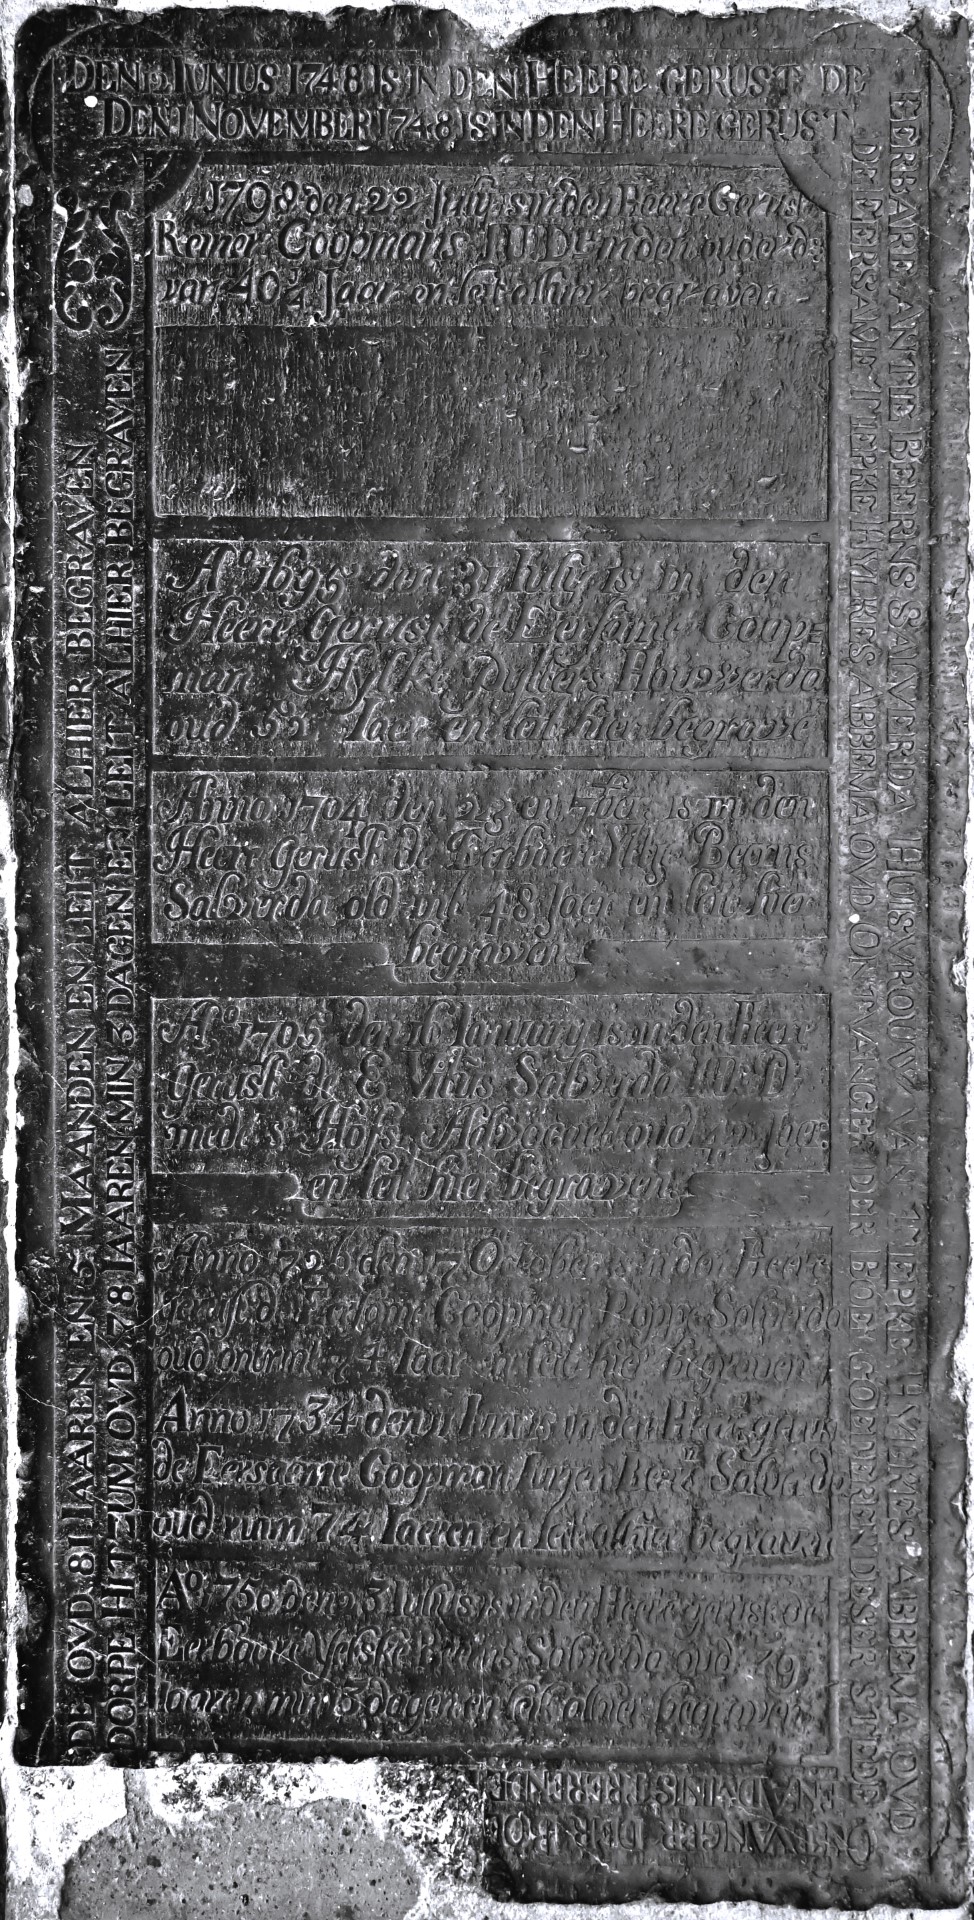 DEN IUNIUS 1748 IS IN DEN HEERE GERUST DE
EERBARE ANTIE BEERNS SALVERDA HUISVROUW VAN TIEPKE HYLKES ABBEMA OVD
OVD 81 IAAREN EN 5 MAANDEN EN LEIT ALHIER BEGRAVEN
DEN 1 NOVEMBER 1748 IS IN DEN HEERE GERUST
DE EERSAME TIEPKE HYLKES ABBEMA OVD ONTVANGER DER BOELGOEDEREN DESER STEDE
ONTVANGER DER BOE
EN ADMINISTRERENDE
DORPE HITZUM OVD 78 IAAREN MIN 3 DAGEN EN LEIT ALHIER BEGRAVEN
1798 den 22 July is in den Heere Gerust
Reiner Coopmans I.U.Dr. in den ouderd:
van 40¾ Jaar en leit alhier begraven
Ao 1695 den 31 Iuly is in den
Heere Gerust de Eersame Coop=
man Hylke Pytters Houwerda
oud 52 Iaer en leit hier begrave
Anno 1704 den 23 en 7ber is in den
Heere gerust de Eerbaere Yttje Beerns
Salverda old int 48 Jaer en leit hier
begraven
Ao 1705 den 16 January is in den Heere
gerust de E Vitus Salverda I.U.D
mede s Hofs Advocaet oud Jaer
en leit hier begraven
Anno 1726 den 17 October is in den Heere
gerust de Eersame Coopman Poppe Salverda
oud ontrent 74 Iaar en leit hier begraven
Anno 1734 den 11 Iuni is in den Heer gerust
de Eersaeme Coopman Iurjen Beer Salverda
oud ruim 74 Iaeren en leit alhier begraven
Ao 1750 den 23 Iulius is in den Heere gerust de
Eerbaare Yefske Beerns Salverda oud 79
Iaaren min 3 dagen en leit alhier begraven